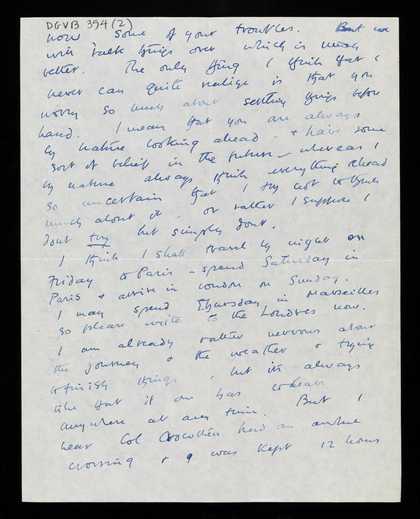 DGVB 394(2)
now some of your troubles. But we
will talk things over which is much
better. The only thing I think that I
never can quite realise is that you
worry so much about settling things before
hand. I mean that you are always
by nature looking ahead & have some
sort of belief in the future – whereas I
by nature always think everything ahead
so uncertain that I try not to think
much about it – or rather I suppose I
dont try but simply dont.
I think I shall travel by night on
Friday to Paris – spend Saturday in
Paris & arrive in London on Sunday.
I may spend Thursday in Marseilles
so please write to the Londres now.
I am already rather nervous about
the journey & the weather & trying
to finish things, but its always
like that if one has to leave
anywhere at any time. But I
hear Col had an awful
crossing & was kept 12 hours